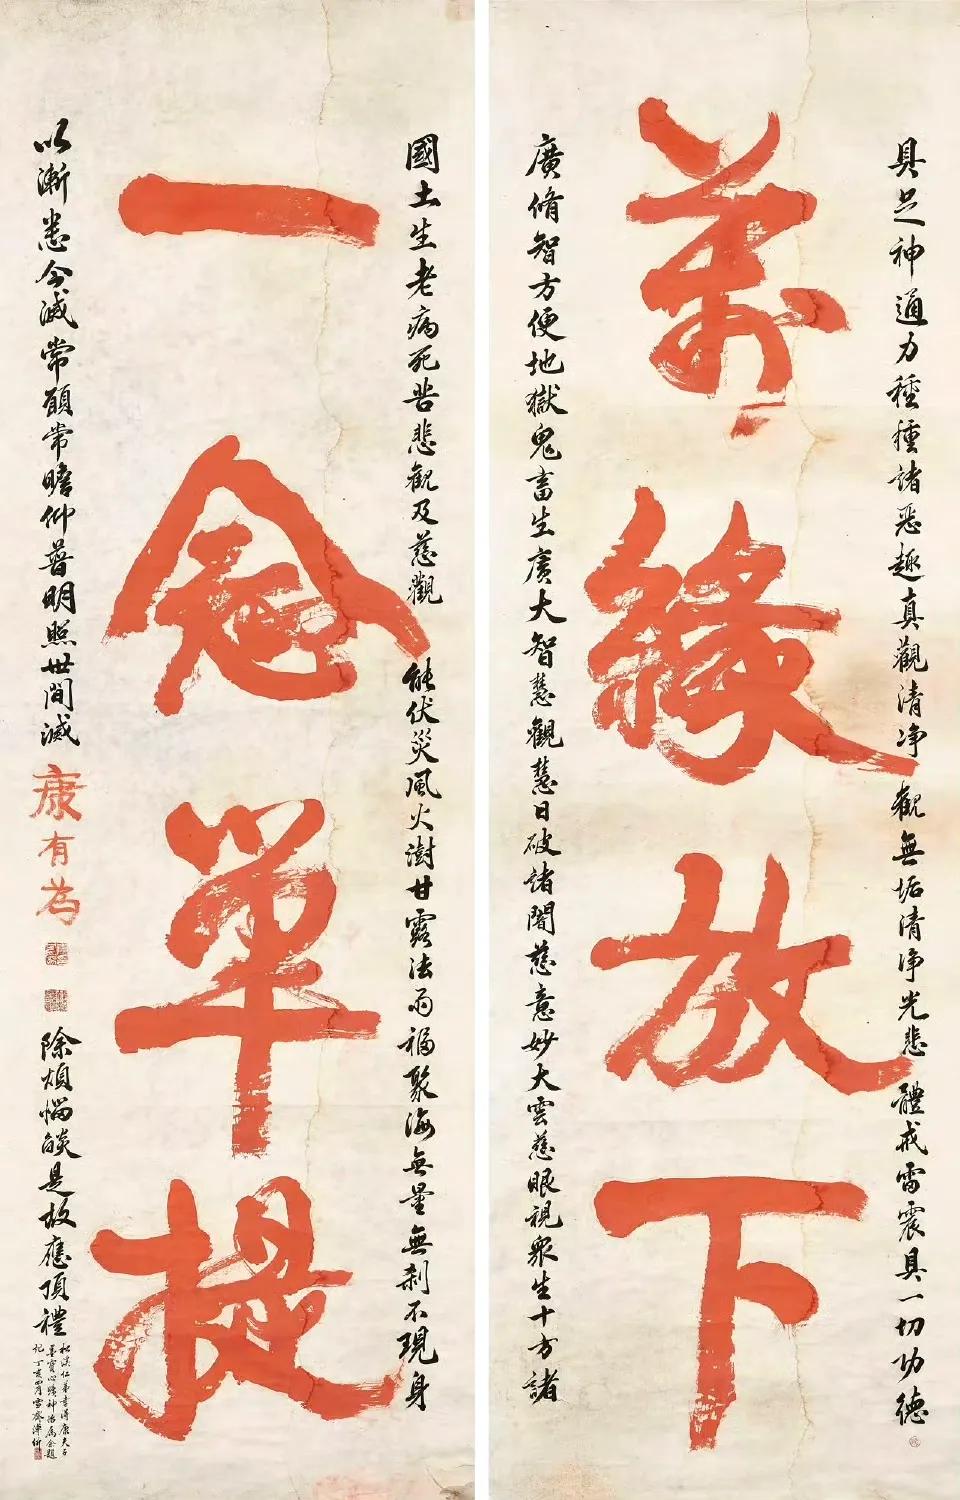 具足神通力種種諸惡趣真觀清净觀無垢清淨光悲體戒雷震具一切功德
萬緣放下
廣脩智方便地獄鬼畜生廣大智慧觀慧日破諸闇慈意妙大雲慈眼視眾生十方諸
國土生老病死苦悲觀及慈觀能伏災風火澍甘露法雨福聚海無量無刹不現身
一念單提
以漸悉令滅常願常瞻仰普明照世間滅
康有為
除煩惱燄是故應頂禮
松溪仁弟喜得康夫子
墨寶心神怡屬余題
記丁亥四月雪齋溥伒